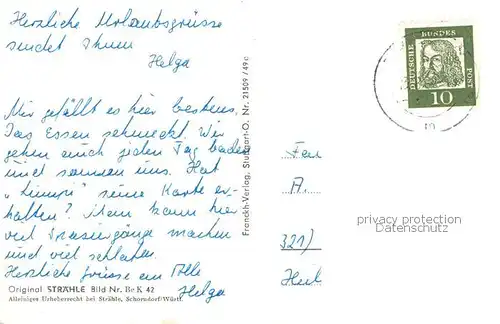 Herzliche Urlaubsgrüsse
sendet Ihnen
Helga
Mir gefällt es hier bestens.
Das Essen schmeckt. Wir
gehen auch jeden Tag baden
und sonnen uns. Hat
" " seine Karte er-
halten? Man kann hier
viel Spaziergänge machen
und viel schlafen.
Herzliche Grüsse an Alle
Helga
Original STRÄHLE Bild Nr. Be K 42
Alleiniges Urheberrecht bei Strähle, Schorndorf/Württ.
Franckh-Verlag, Stuttgart-O. Nr. 21509/49c
DEUTSCHE BUNDES POST
10
A.
321)
privacy protection
Datenschutz